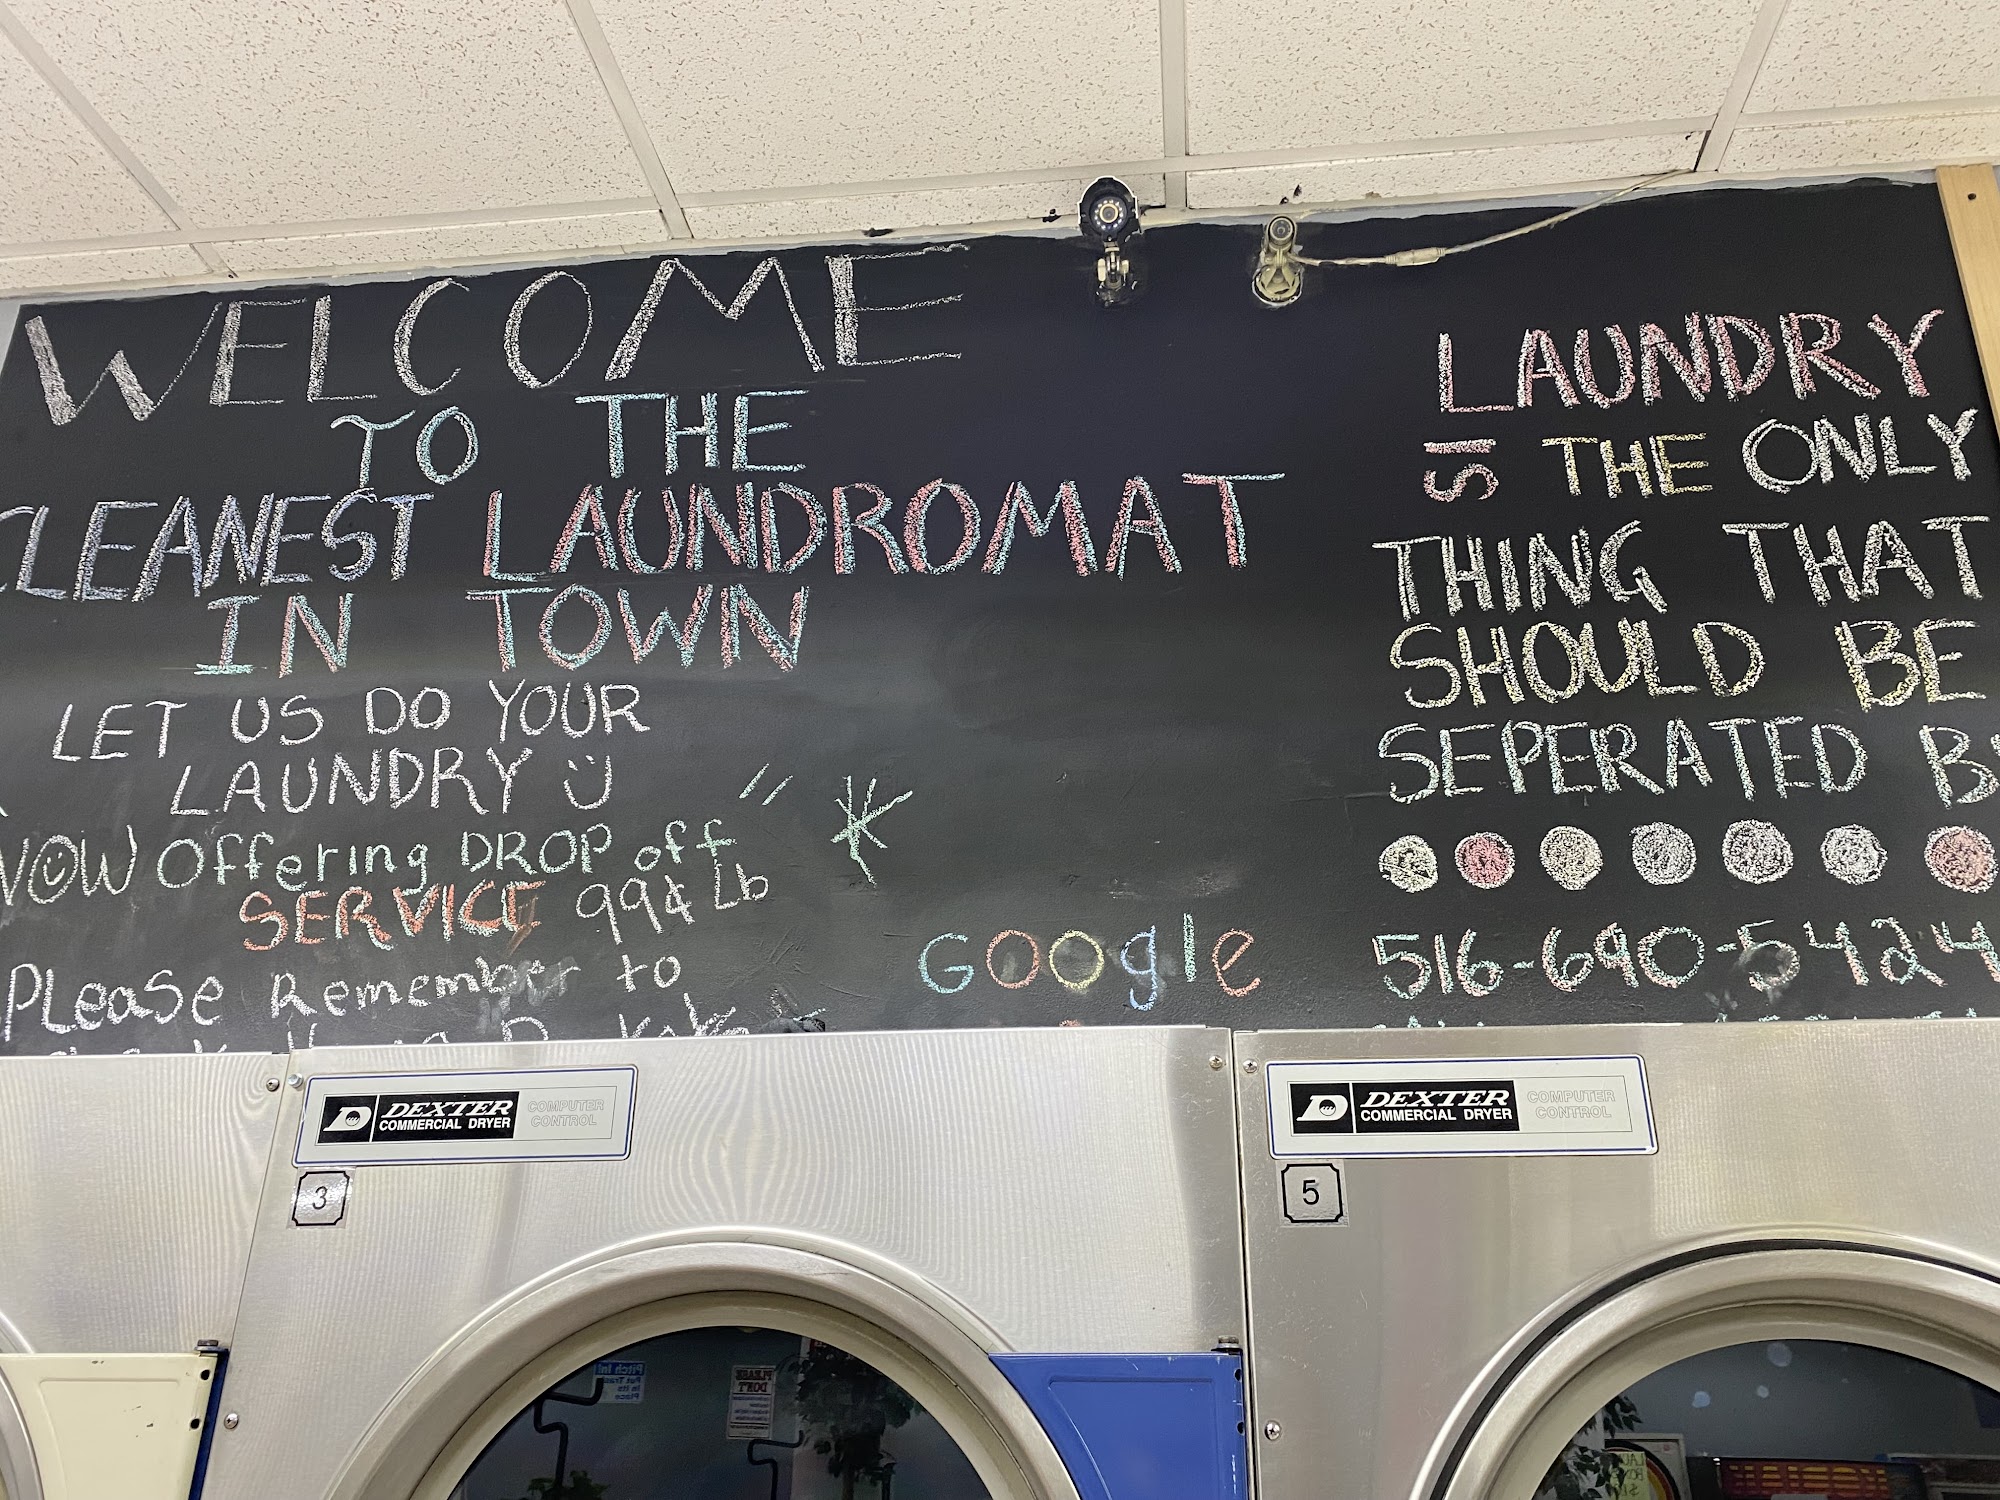 WELCOME
TO THE
CLEANEST LAUNDROMAT
IN TOWN
LET US DO YOUR
LAUNDRY
NOW Offering DROP off
SERVICE 99¢ Lb
PLease Remember to
Google
LAUNDRY
IS THE ONLY
THING THAT
SHOULD BE
SEPERATED BY
516-690-5424
DEXTER
COMMERCIAL DRYER
COMPUTER
CONTROL
3
DEXTER
COMMERCIAL DRYER
COMPUTER
CONTROL
5
Pitch In!
Put Trash
In Its
Place
PLEASE
DON'T